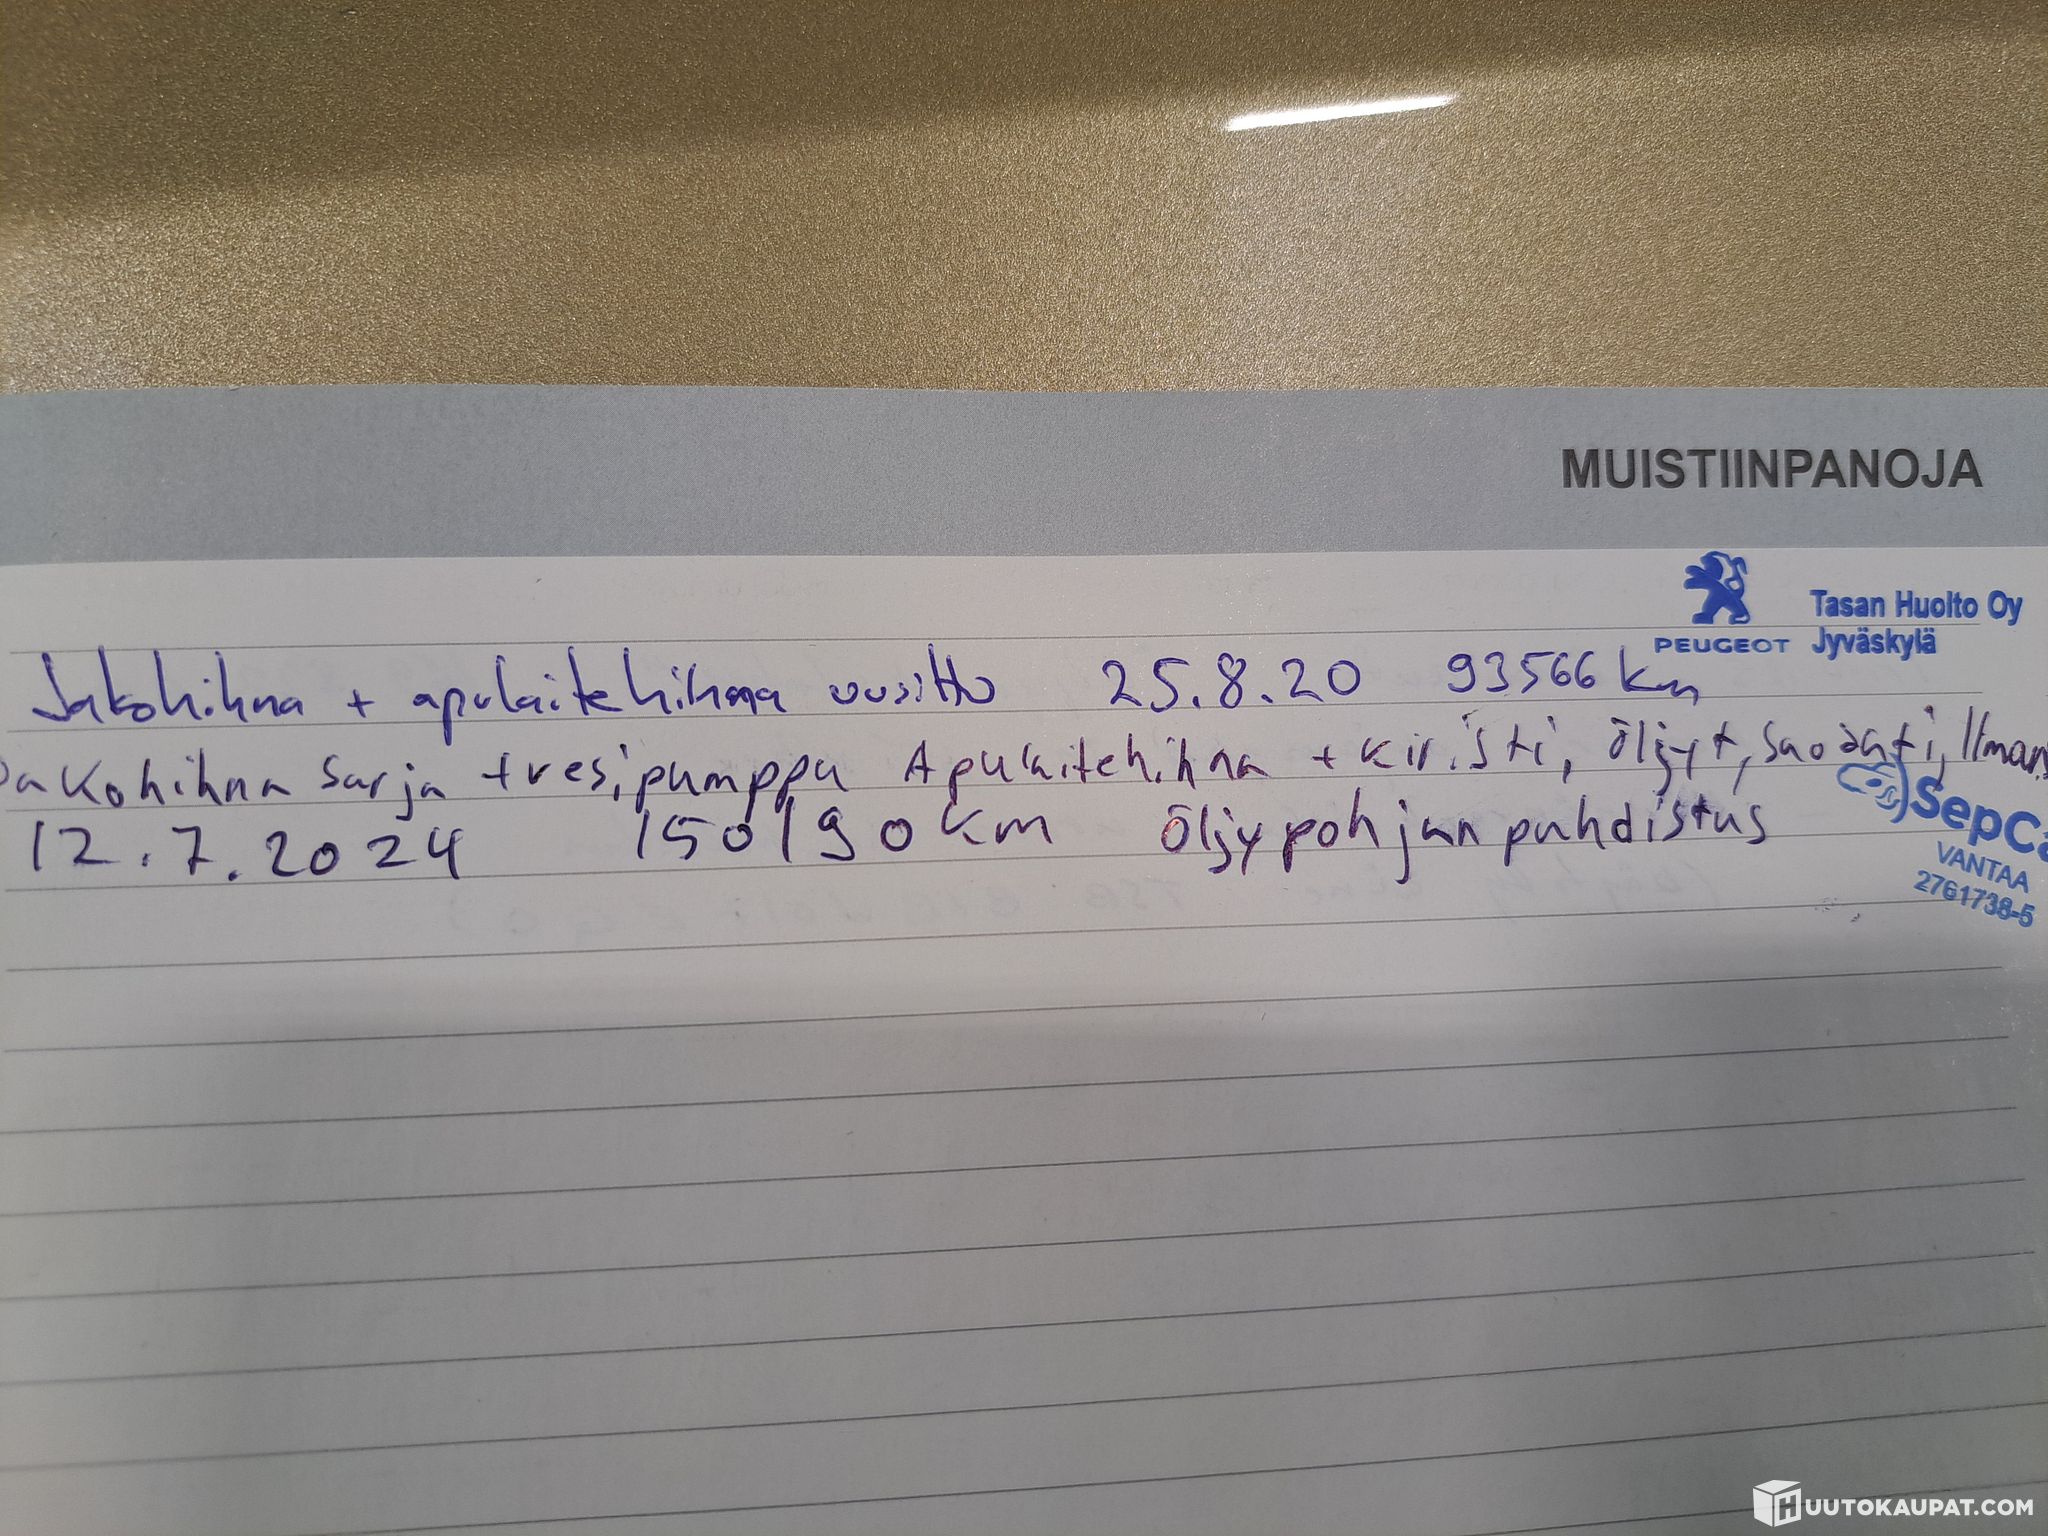 MUISTIINPANOJA
PEUGEOT
Tasan Huolto Oy
Jyväskylä
Jakohihna + apulaitehihna uusittu 25.8.20 93566 km
Jakohihna sarja + vesipumppu Apulaitehihna + kiristi, Öljyt, suodati, Ilman
12.7.2024 150190 km Öljypohjan puhdistus
SepCa
VANTAA
2761738-5
HUUTOKAUPAT.COM